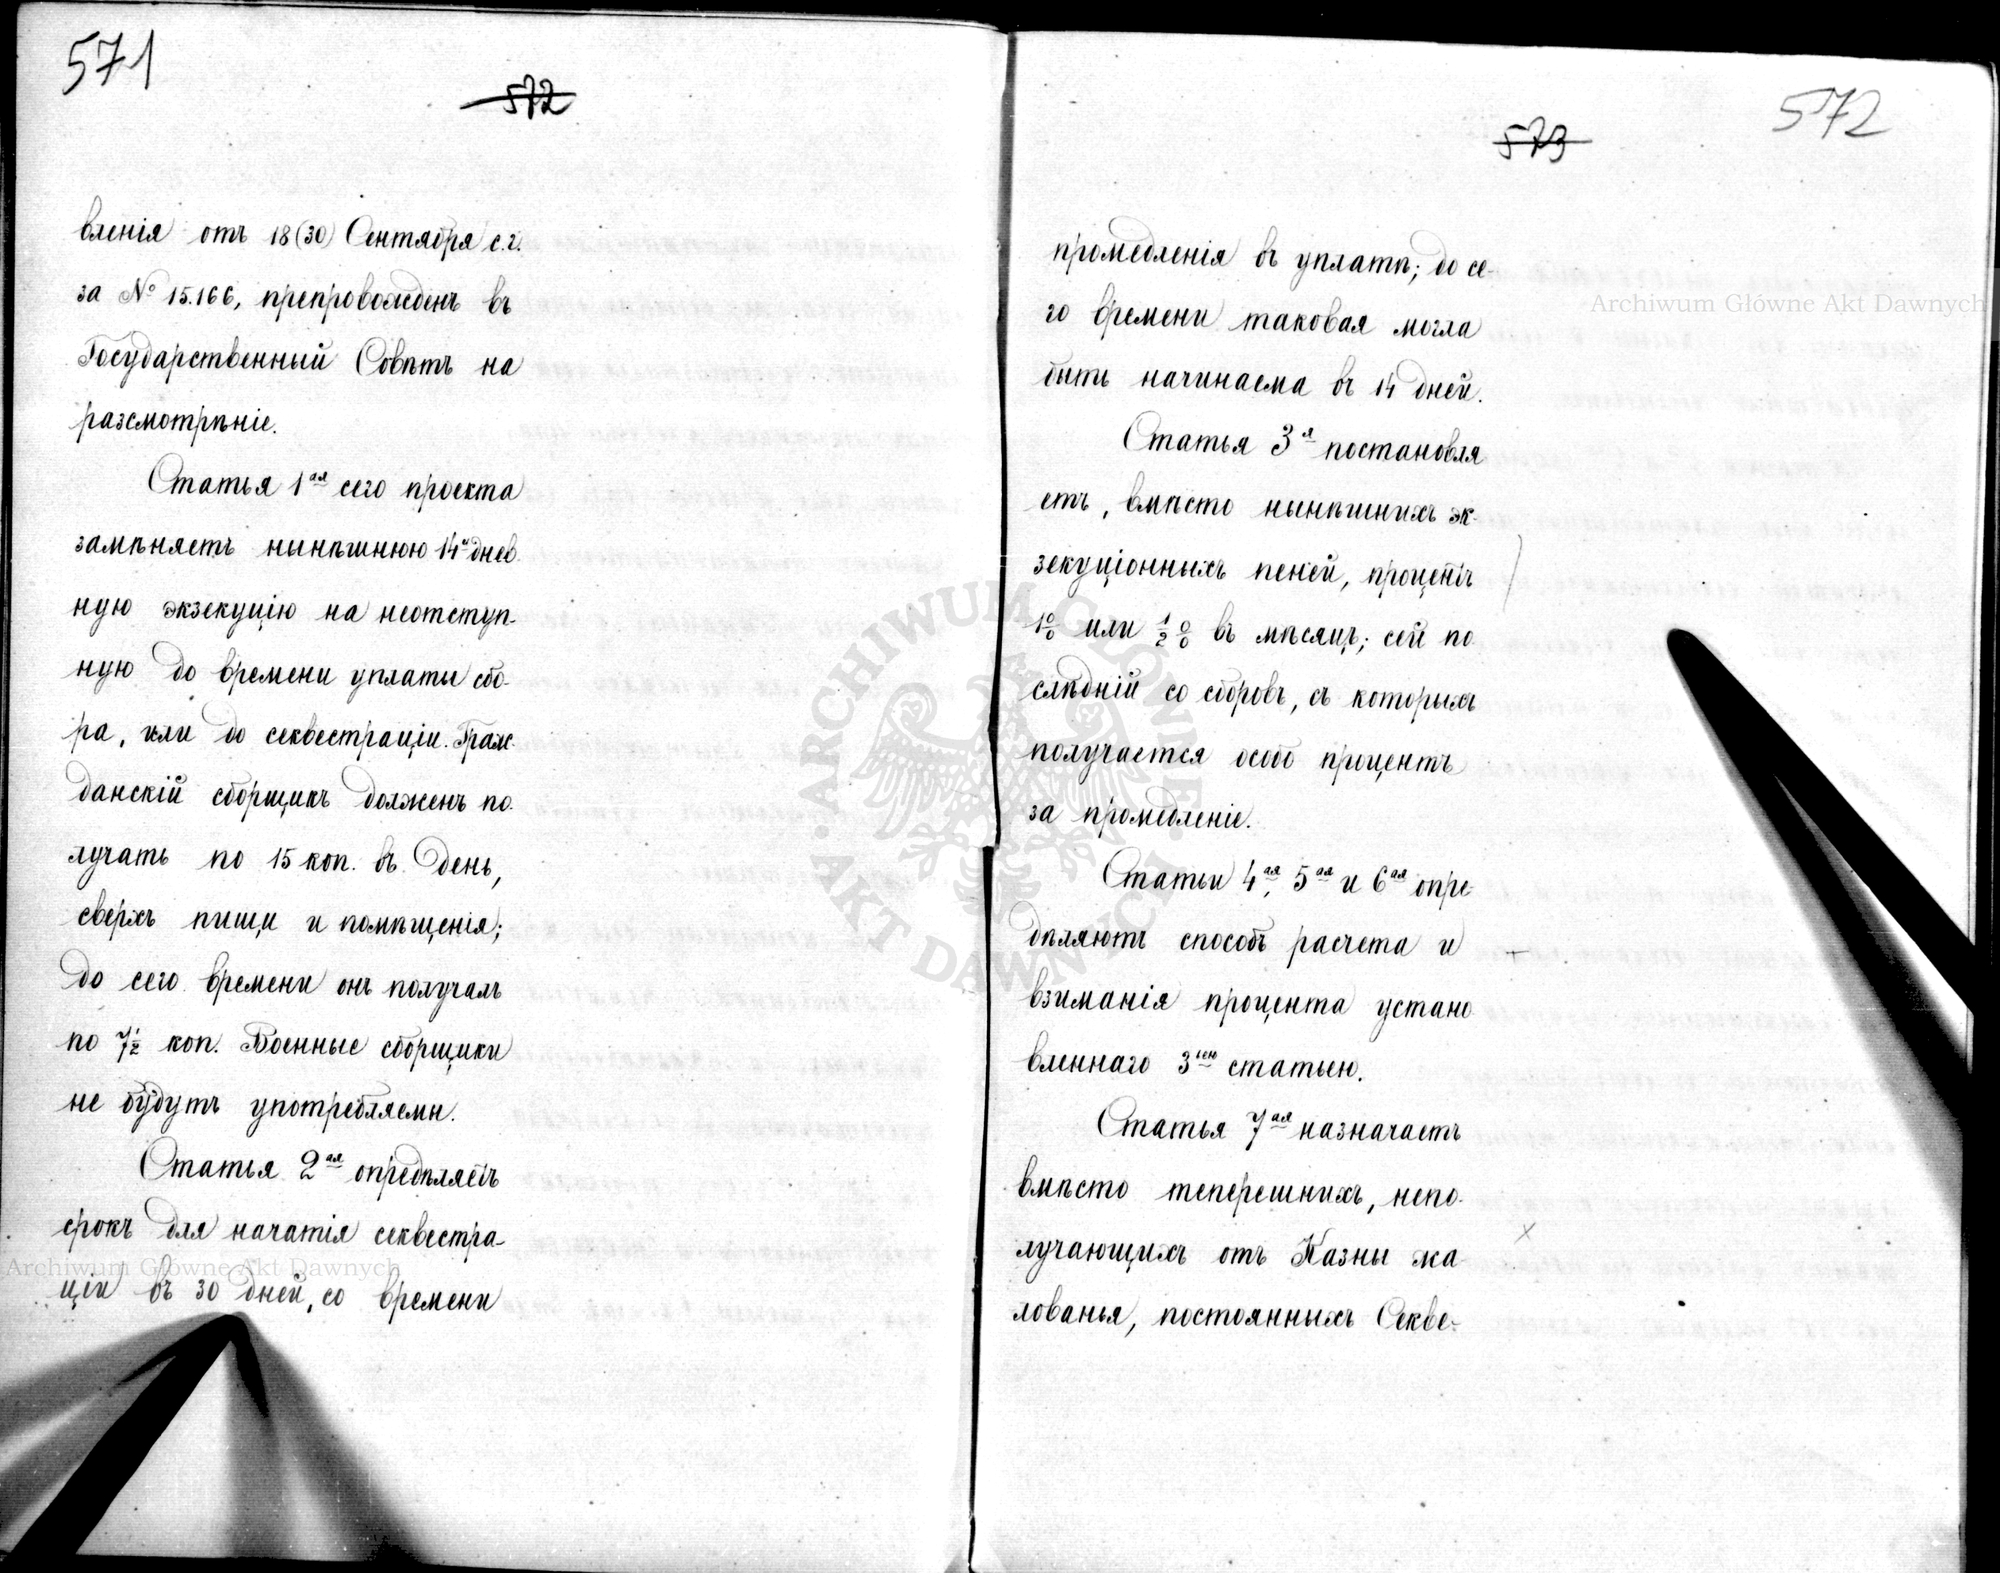 571
572
вленія отъ 18 (30) Сентября с.г.
за № 15.166, препровожденъ въ
Государственный Совѣтъ на
разсмотрѣніе.
Статья 1ая сего проекта
замѣняетъ нынѣшнюю 14и днев
ную экзекуцію на неотступ-
ную до времени уплаты сбо-
ра, или до секвестраціи. Граж-
данскій сборщикъ долженъ по-
лучать по 15 коп. въ день,
сверхъ пищи и помѣщенія;
до сего времени онъ получалъ
по 7½ коп. Военные сборщики
не будутъ употребляемы.
Статья 2ая опредѣляетъ
срокъ для начатія секвестра-
ціи въ 30 дней, со времени
572
573
промедленія въ уплатѣ; до се-
го времени таковая могла
быть начинаема въ 14 дней.
Статья 3я постановля
етъ, вмѣсто нынѣшнихъ эк-
зекуціонныхъ пеней, процентъ
1% или ½% въ мѣсяцъ; сей по
слѣдній со сборовъ, съ которыхъ
получается особо процентъ
за промедленіе.
Статьи 4ая, 5ая и 6ая опре-
дѣляютъ способъ расчета и
взиманія процента устано
вленнаго 3ею статьею.
Статья 7ая назначаетъ
вмѣсто теперешнихъ, непо-
лучающихъ отъ Казны жа
лованья, постоянныхъ Секве-
Archiwum Główne Akt Dawnych
Archiwum Główne Akt Dawnych
ARCHIWUM GŁÓWNE
AKT DAWNYCH